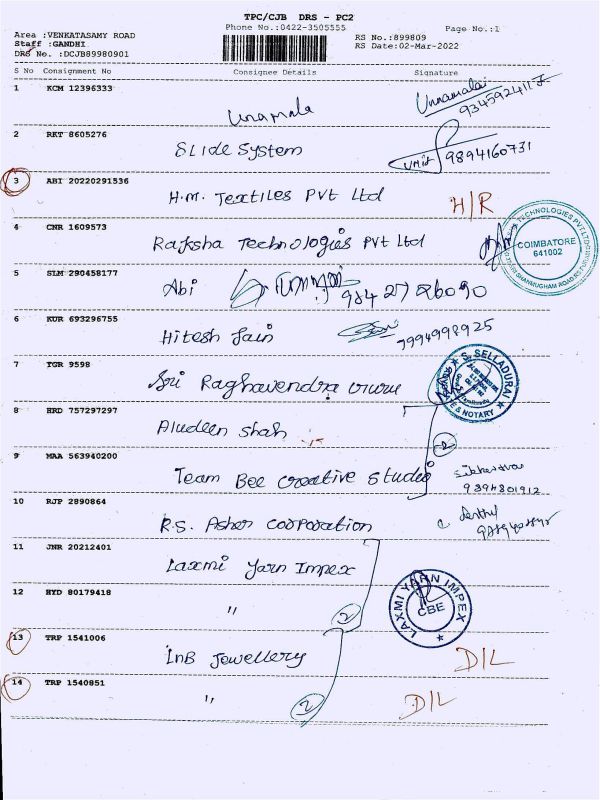 TPC/CJB DRS - PC2
Phone No.:0422-3505555
Page No.:1
Area :VENKATASAMY ROAD
RS No.:899809
Staff :GANDHI
RS Date:02-Mar-2022
DRS No. :DCJB89980901
S No Consignment No Consignee Details Signature
1 KCM 12396333 Unamala Unnamalai
9345924115
2 RKT 8605276 SLide System 9894160731
3 ABI 20220291536 H.M. Textiles Pvt Ltd H/R
4 CNR 1609573 Raksha Technologies Pvt Ltd
TECHNOLOGIES PVT LTD
COIMBATORE
641002
5 SLM 290458177 Abi 9842726090
6 KUR 693296755 Hitesh Jain 7994998925
7 TGR 9598 Sri Raghavendra
S. SELLADURAI
& NOTARY
8 HRD 757297297 Aludeen shah
9 MAA 563940200 Team Bee Creative Studio 2
9394801912
10 RJP 2890864 R.S. Asher Corporation
11 JNR 20212401 Laxmi Yarn Impex
12 HYD 80179418 " 2
LAXMI YARN IMPEX
CBE
13 TRP 1541006 InB Jewellery D/L
14 TRP 1540851 " 2 D/L